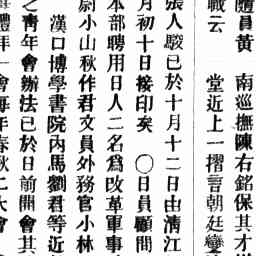 戰云　堂近上一摺言朝廷變
隨員黃　南巡撫陳右銘保其才堪
張人駿已於十月十二日由淸江
月初十日接印矣　〇日員顧問
本部聘用日人二名爲改革軍事
尉小山秋作君文員外務官小林
漢口博學書院內馬劉君等近
之靑年會辦法已於日前開會其
禮拜一會每年春秋二大會